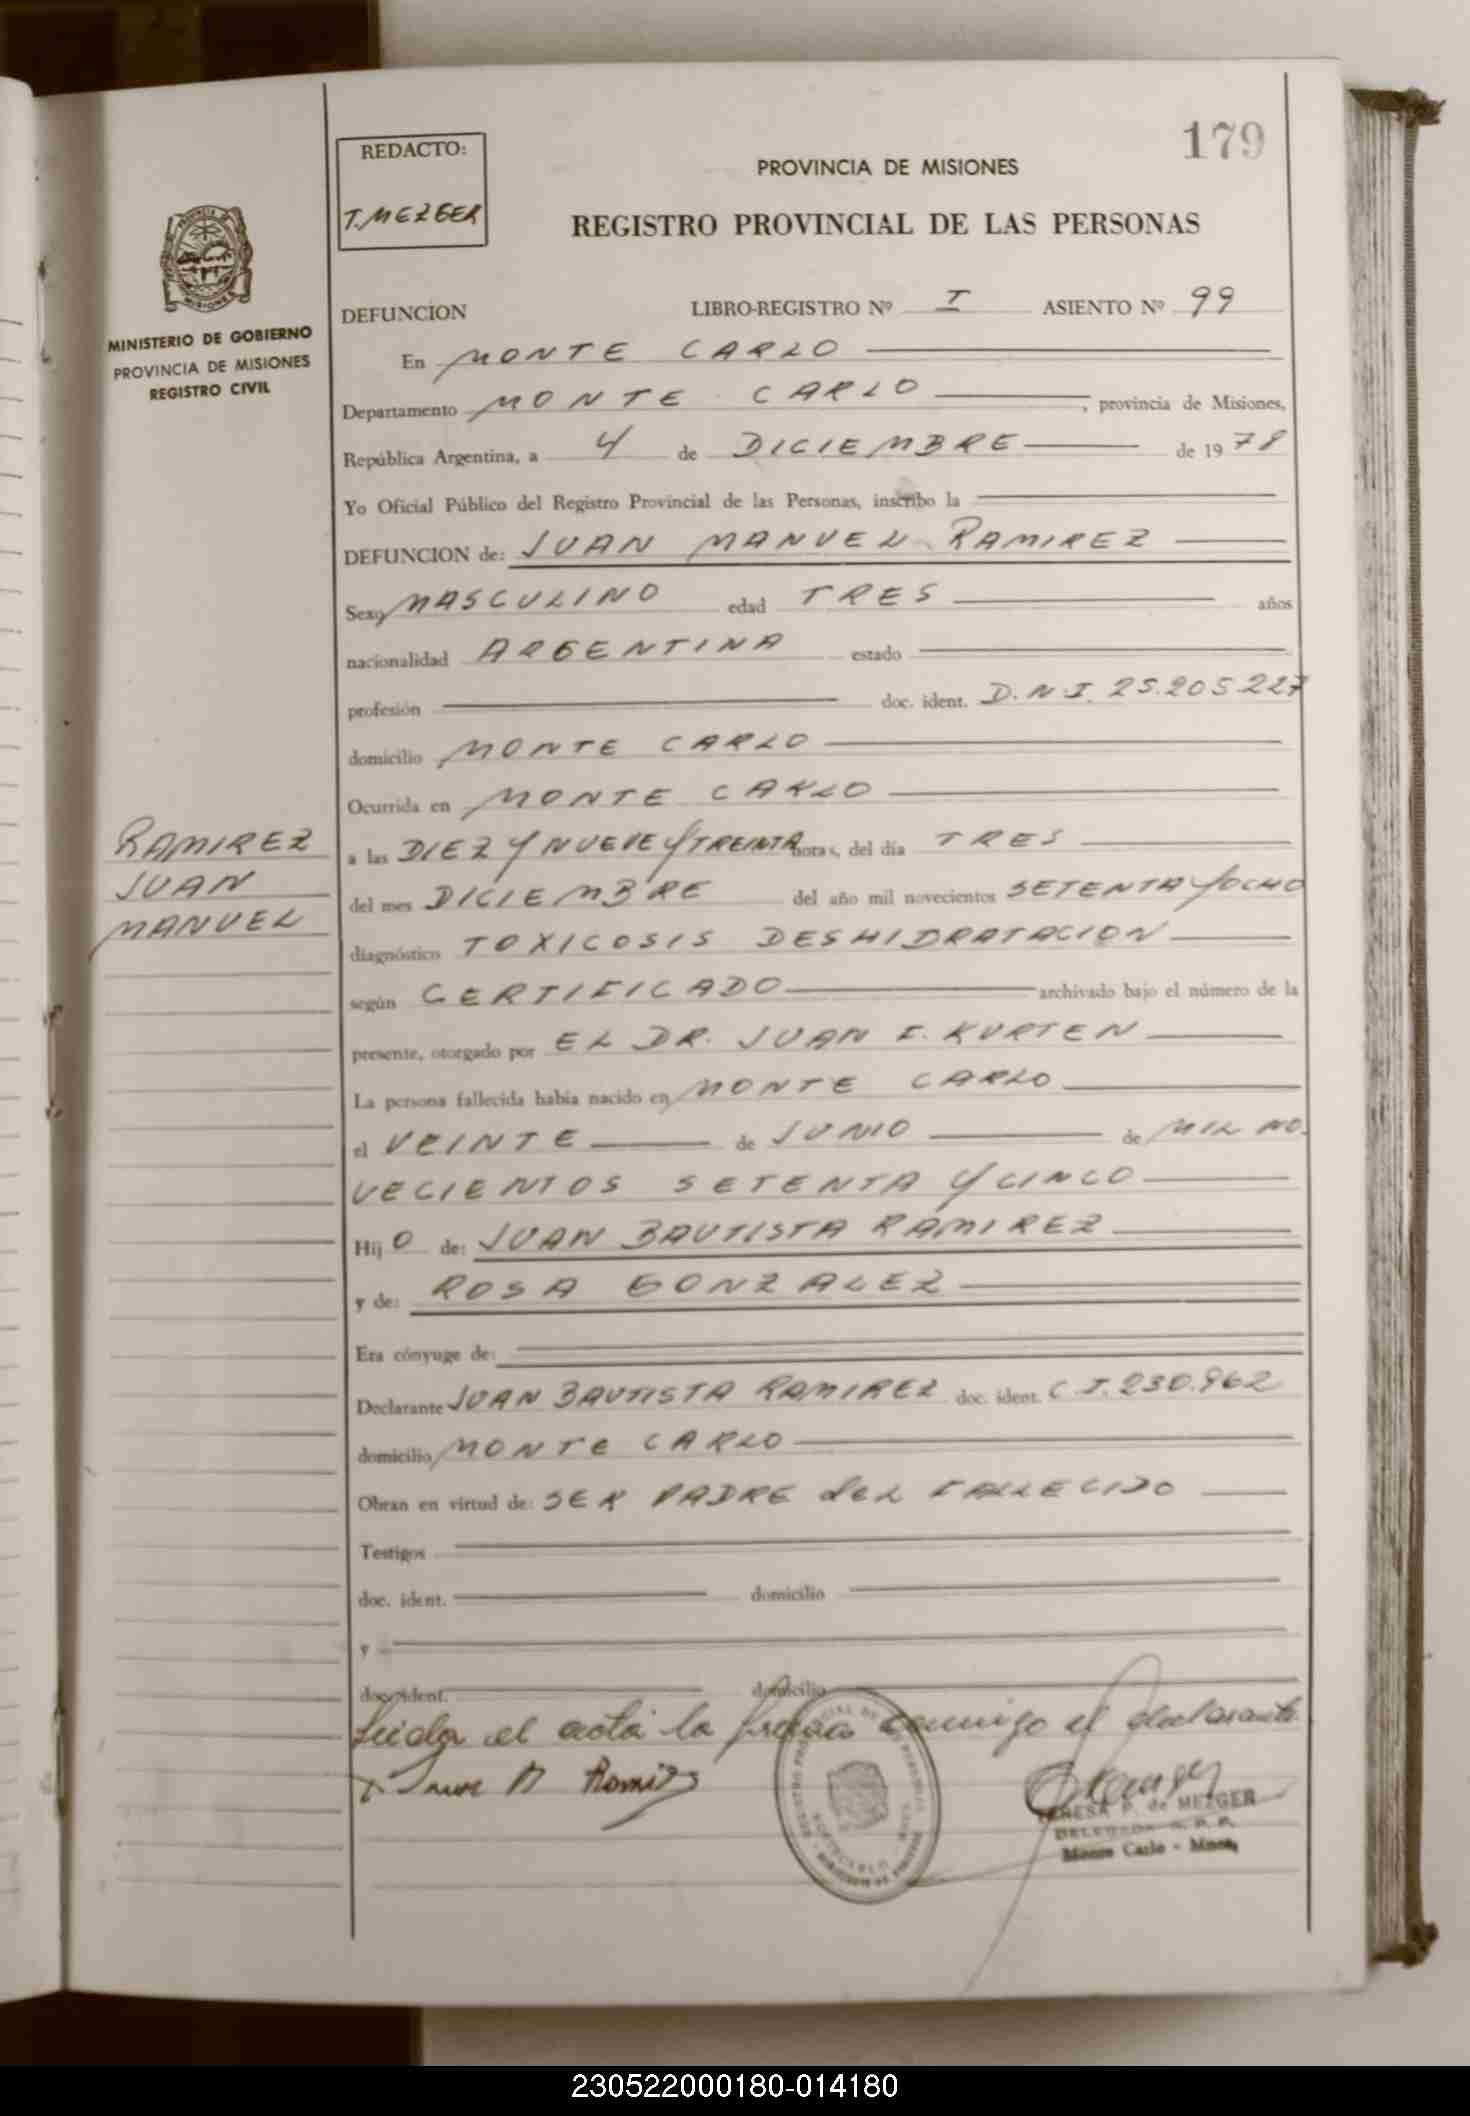 179
REDACTO:
T. MEZGER
PROVINCIA DE MISIONES
REGISTRO PROVINCIAL DE LAS PERSONAS
MINISTERIO DE GOBIERNO
PROVINCIA DE MISIONES
REGISTRO CIVIL
DEFUNCION LIBRO-REGISTRO Nº I ASIENTO Nº 99
En MONTE CARLO
Departamento MONTE CARLO, provincia de Misiones,
República Argentina, a 4 de DICIEMBRE de 1978
Yo Oficial Público del Registro Provincial de las Personas, inscribo la
DEFUNCION de: JUAN MANUEL RAMIREZ
Sexo MASCULINO edad TRES años
nacionalidad ARGENTINA estado
profesión doc. ident. D.N.I. 25.205.227
domicilio MONTE CARLO
Ocurrida en MONTE CARLO
RAMIREZ
JUAN
MANUEL
a las DIEZ Y NUEVE Y TREINTA horas, del día TRES
del mes DICIEMBRE del año mil novecientos SETENTA Y OCHO
diagnóstico TOXICOSIS DESHIDRATACION
según CERTIFICADO archivado bajo el número de la
presente, otorgado por EL DR. JUAN F. KURTEN
La persona fallecida había nacido en MONTE CARLO
el VEINTE de JUNIO de MIL NO-
VECIENTOS SETENTA Y CINCO
Hijo de: JUAN BAUTISTA RAMIREZ
y de: ROSA GONZALEZ
Era cónyuge de:
Declarante JUAN BAUTISTA RAMIREZ doc. ident. C.I. 230.962
domicilio MONTE CARLO
Obran en virtud de: SER PADRE DEL FALLECIDO
Testigos
doc. ident. domicilio
y
doc. ident. domicilio
Leida el acta la firma conmigo el declarante
TERESA P. de MEZGER
DELEGADA R. P. P.
Monte Carlo - Mnes.
230522000180-014180